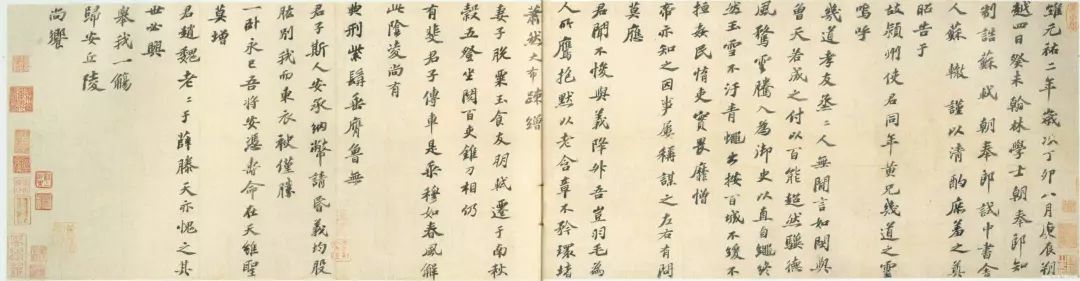 維元祐二年歲次丁卯八月庚辰朔
越四日癸未翰林學士朝奉郎知
制誥蘇軾朝奉郎試中書舍
人蘇轍謹以清酌庶羞之奠
昭告于
故潁州使君同年黃兄幾道之靈
嗚呼
幾道孝友烝烝人無間言如閔與
曾天若成之付以百能超然驥德
風騖雲騰入為御史以直自繩終
然玉雪不汙青蠅出按百城不緩不
絙姦民惰吏實畏靡憎
帝亦知之因事屢稱謀之左右有問
莫應
君聞不悛與義降升吾豈羽毛為
人所鷹抱默以老含章不矜環堵
蕭然大布疎繒
妻子脫粟玉食友朋軾遷于南秋
穀五登坐閱百吏錐刀相仍
有斐君子傳車是乘穆如春風解
此陰凌尚有
典刑紫髯垂膺魯無
君子斯人安承納幣請昏義均股
肱別我而東衣袂僅勝
一卧永已吾將安憑壽命在天雖聖
莫增
君趙魏老老于薛滕天亦愧之其
世必興
舉我一觴
歸安丘陵
尚饗